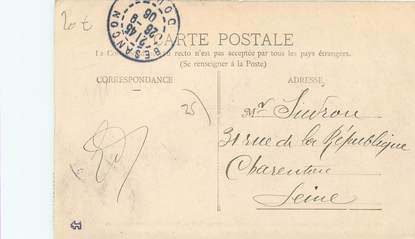 20 €
BESANÇON DOUBS
21 45
26 -8
06
CARTE POSTALE
recto n'est pas acceptée par tous les pays étrangers.
(Se renseigner à la Poste)
CORRESPONDANCE
ADRESSE
25)
Mr
31 rue de la République
Charenton
Seine